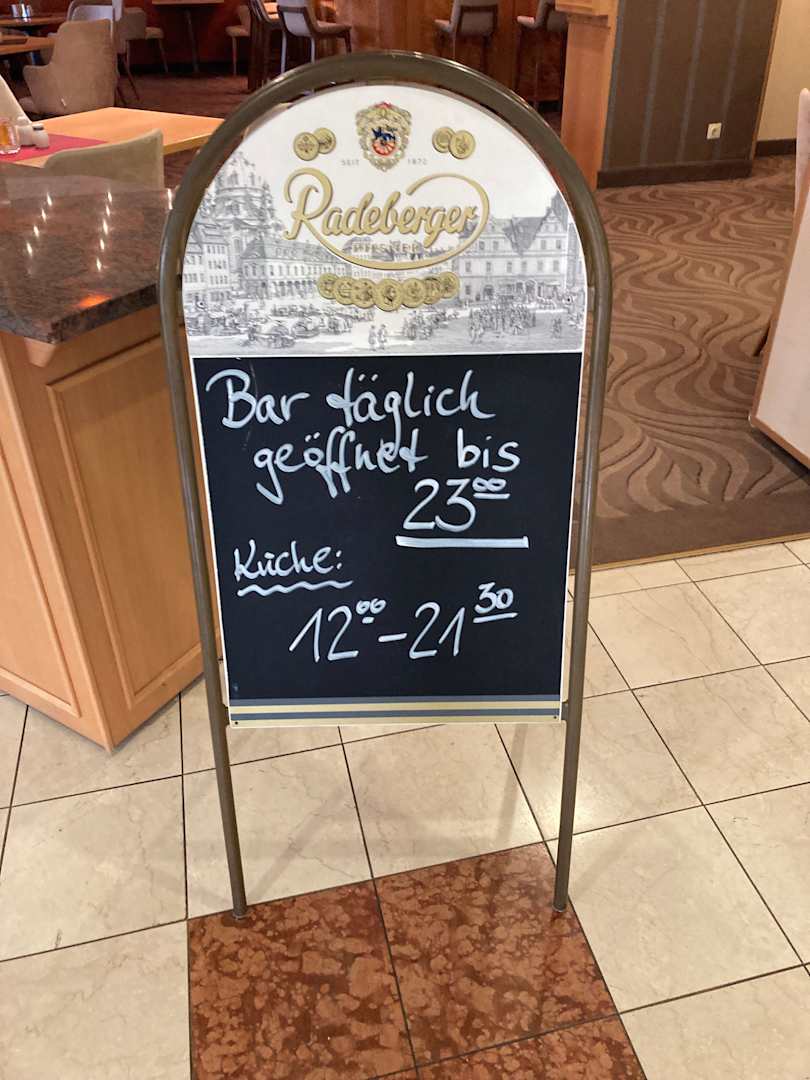 SEIT 1872
Radeberger
PILSNER
Bar täglich
geöffnet bis
23⁰⁰
Küche:
12⁰⁰ – 21³⁰